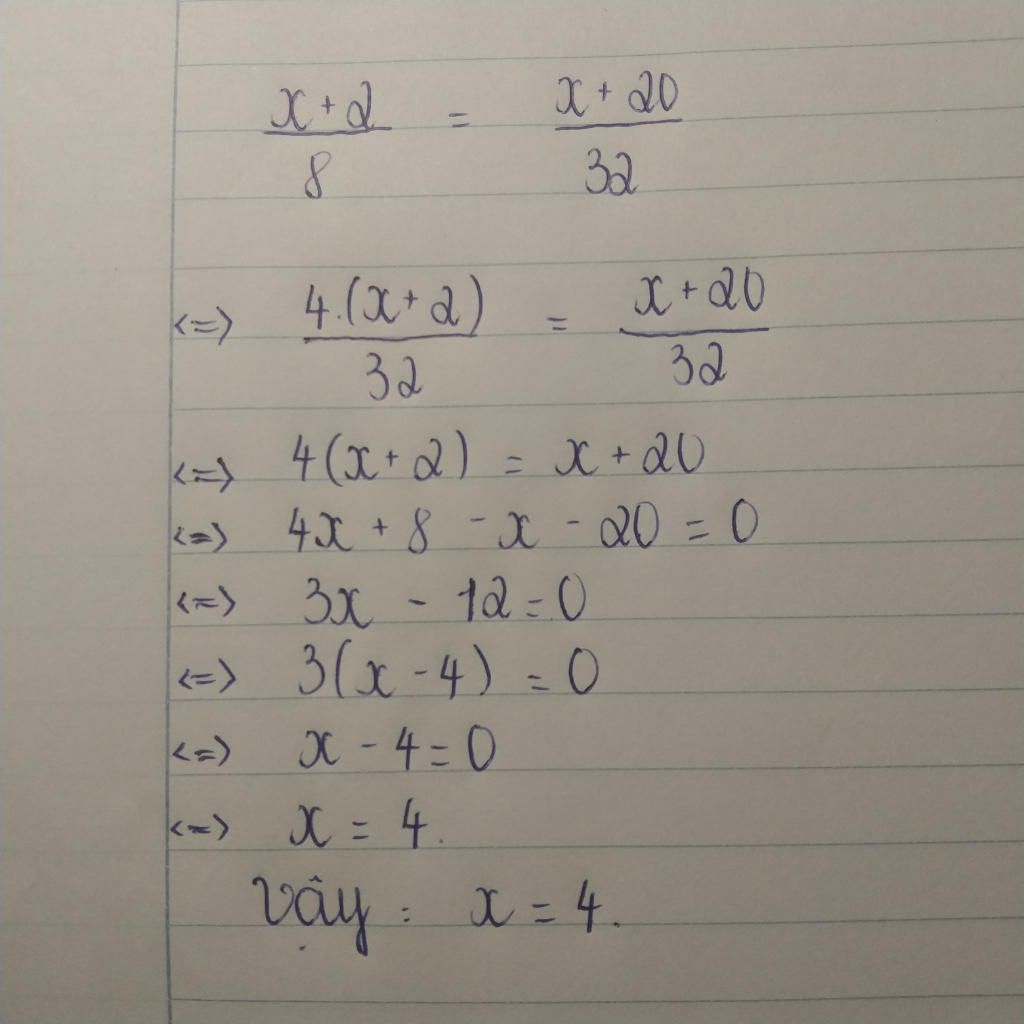 x + 2 / 8 = x + 20 / 32
<=> 4.(x + 2) / 32 = x + 20 / 32
<=> 4(x + 2) = x + 20
<=> 4x + 8 - x - 20 = 0
<=> 3x - 12 = 0
<=> 3(x - 4) = 0
<=> x - 4 = 0
<=> x = 4.
Vậy : x = 4.